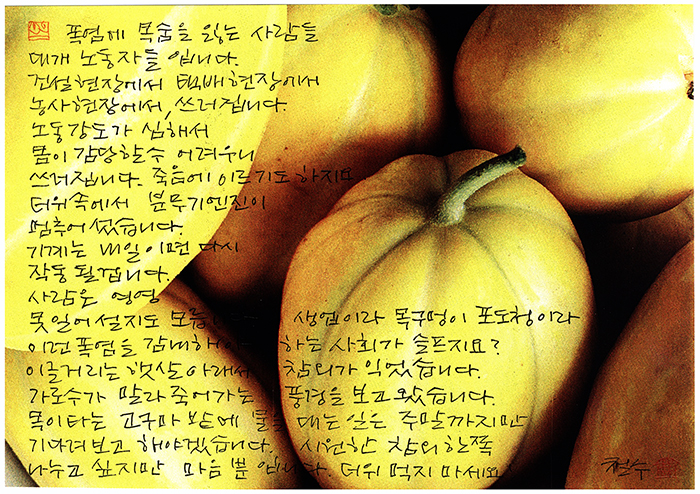 폭염에 목숨을 잃는 사람들
대개 노동자들 입니다.
건설현장에서 택배현장에서
농사현장에서, 쓰러집니다.
노동강도가 심해서
몸이 감당할수 어려우니
쓰러집니다. 죽음에 이르기도 하지요
더위속에서 분무기엔진이
멈추어 섰습니다.
기계는 내일이면 다시
작동 될겁니다.
사람은 영영
못일어설지도 모릅 생업이라 목구멍이 포도청이라
이런폭염을 감내해야 하는 사회가 슬프지요?
이글거리는 햇살아래서 참외가 익었습니다.
가로수가 말라 죽어가는 풍경을 보고왔습니다.
목이타는 고구마 밭에 물을 대는 일은 주말까지만
기다려보고 해야겠습니다. 시원한 참외 한쪽
나누고 싶지만 마음 뿐 입니다. 더위 먹지 마세요!
철수